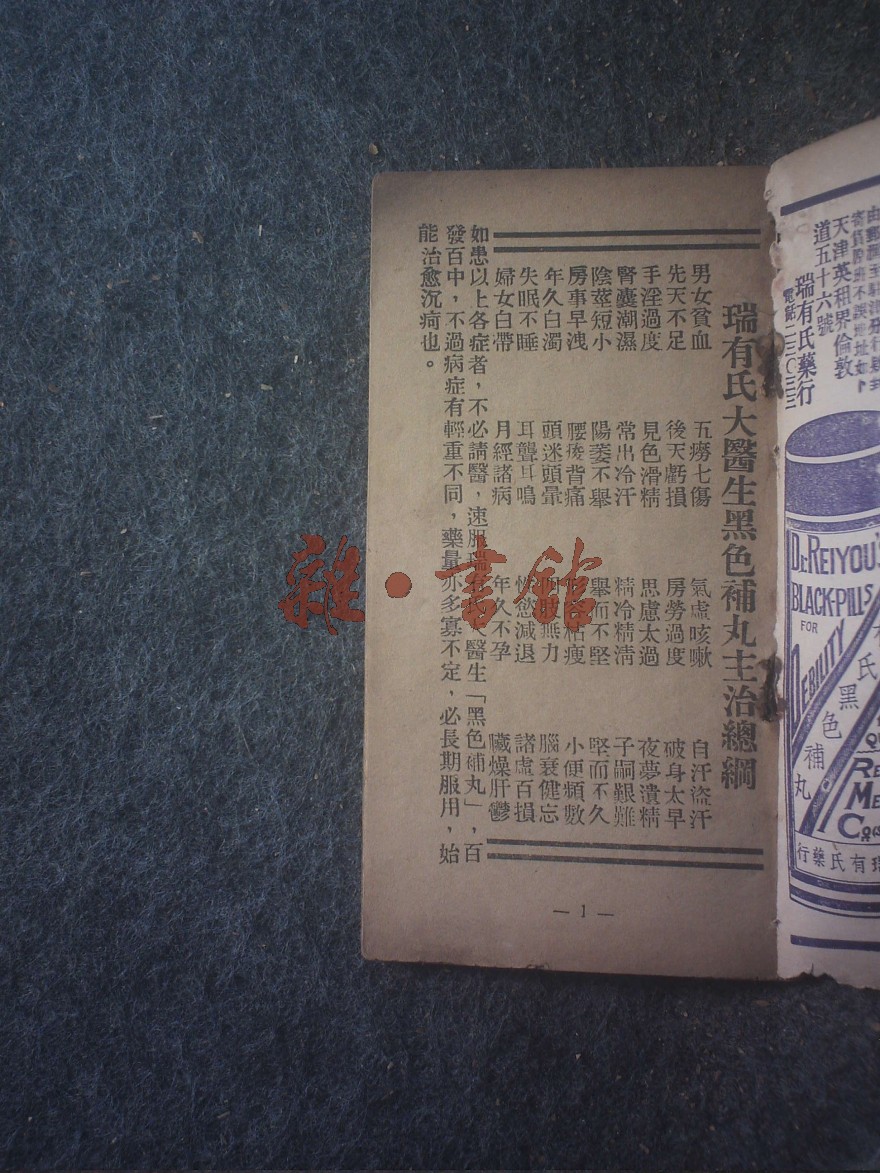 瑞有氏大醫生黑色補丸主治總綱
男女貧血　五癆七傷　氣虛咳嗽　自汗盜汗
先天不足　後天虧損　房勞過度　破身太早
手淫過度　見色滑精　思慮太過　夜夢潰精
腎囊潮濕　常出冷汗　精冷精清　子嗣艱難
陰莖短小　陽萎不舉　舉而不堅　堅而不久
房事早洩　腰痠背痛　瘦　小便頻數
年久白濁　頭迷頭暈　四肢無力　腦衰健忘
失眠不睡　耳聾耳鳴　性慾減退　諸虛百損
婦女白帶　月經諸病　年久不孕　臟燥肝鬱
如患以上各症者，不必請醫，速服瑞有氏大醫生「黑色補丸」，百
發百中，不過病症有輕重不同，藥量亦多寡不定，必長期服用，始
能治愈沉疴也。
— 1 —
天津英租界倫敦
道五十六號
瑞有氏藥行
DR REIYOU'S
BLACK-PILLS
FOR
DEBILITY
氏黑色補丸
行藥氏有瑞
雜·書館